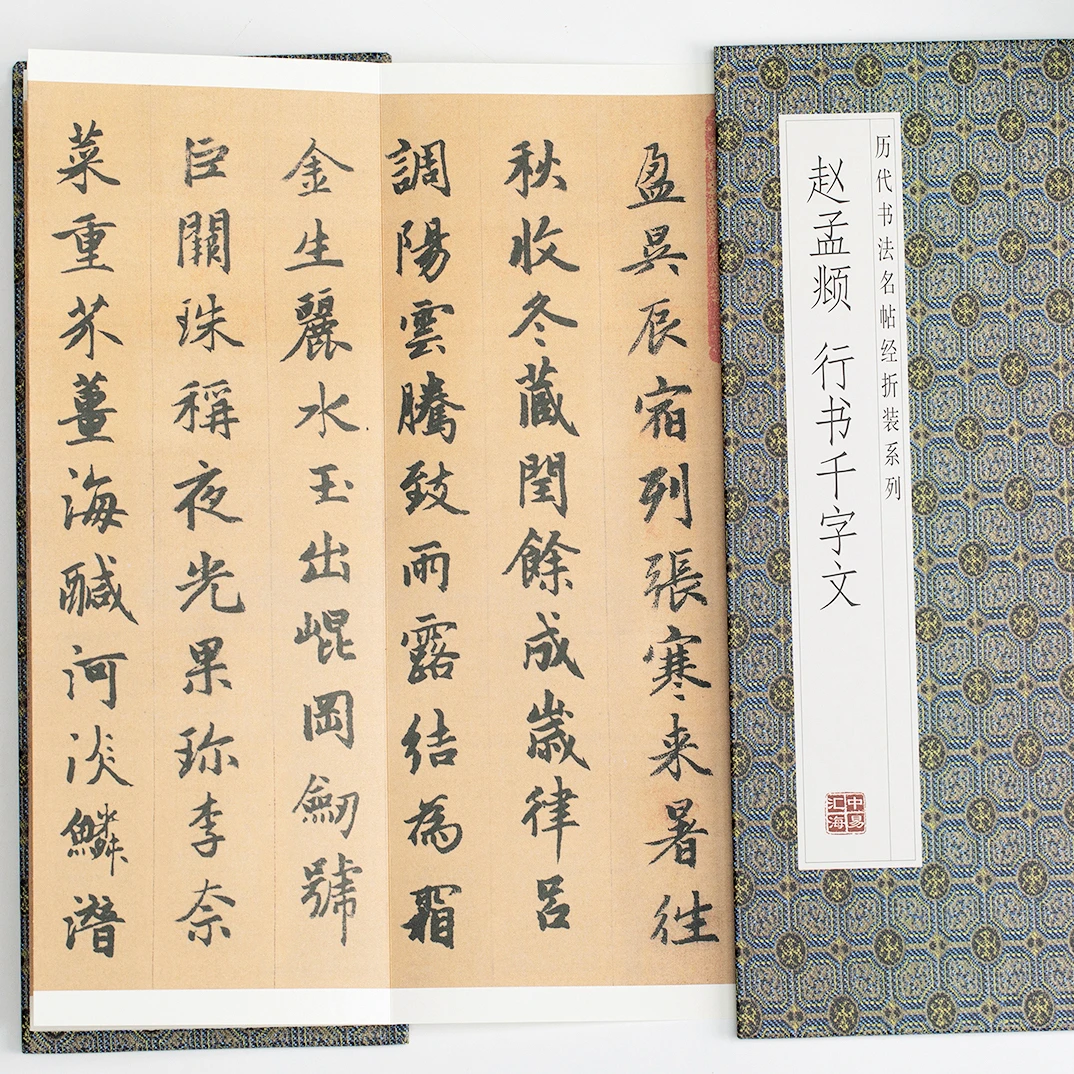 历代书法名帖经折装系列
赵孟𫖯 行书千字文
中易
汇海
盈昃辰宿列張寒来暑往
秋收冬藏閏餘成歲律呂
調陽雲騰致雨露結為霜
金生麗水玉出崐岡劒號
巨闕珠稱夜光果珎李奈
菜重芥薑海醎河淡鱗潛